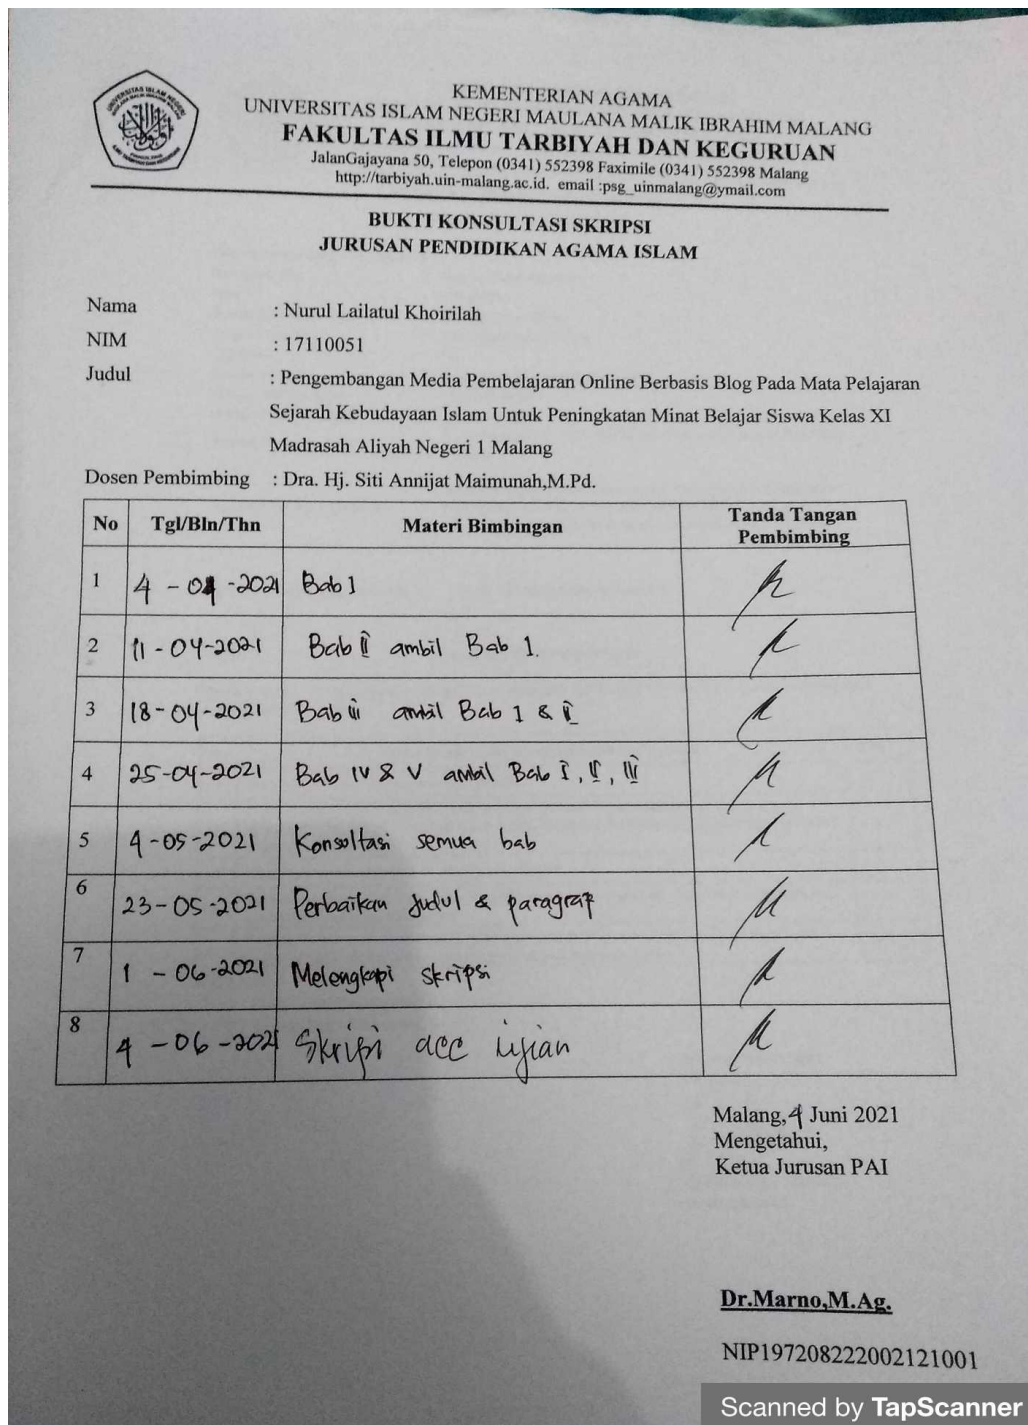 KEMENTERIAN AGAMA
UNIVERSITAS ISLAM NEGERI MAULANA MALIK IBRAHIM MALANG
FAKULTAS ILMU TARBIYAH DAN KEGURUAN
JalanGajayana 50, Telepon (0341) 552398 Faximile (0341) 552398 Malang
http://tarbiyah.uin-malang.ac.id. email :psg_uinmalang@ymail.com
BUKTI KONSULTASI SKRIPSI
JURUSAN PENDIDIKAN AGAMA ISLAM
Nama : Nurul Lailatul Khoirilah
NIM : 17110051
Judul : Pengembangan Media Pembelajaran Online Berbasis Blog Pada Mata Pelajaran
Sejarah Kebudayaan Islam Untuk Peningkatan Minat Belajar Siswa Kelas XI
Madrasah Aliyah Negeri 1 Malang
Dosen Pembimbing : Dra. Hj. Siti Annijat Maimunah,M.Pd.
No Tgl/Bln/Thn Materi Bimbingan Tanda Tangan Pembimbing
1 4 - 04 -2021 Bab 1
2 11 - 04-2021 Bab II ambil Bab 1.
3 18-04-2021 Bab iii ambil Bab 1 & II
4 25-04-2021 Bab IV & V ambil Bab I, II, III
5 4-05-2021 Konsultasi semua bab
6 23-05-2021 Perbaikan judul & paragraf
7 1 - 06-2021 Melengkapi skripsi
8 4 - 06-2021 Skripsi acc ujian
Malang, 4 Juni 2021
Mengetahui,
Ketua Jurusan PAI
Dr.Marno,M.Ag.
NIP197208222002121001
Scanned by TapScanner